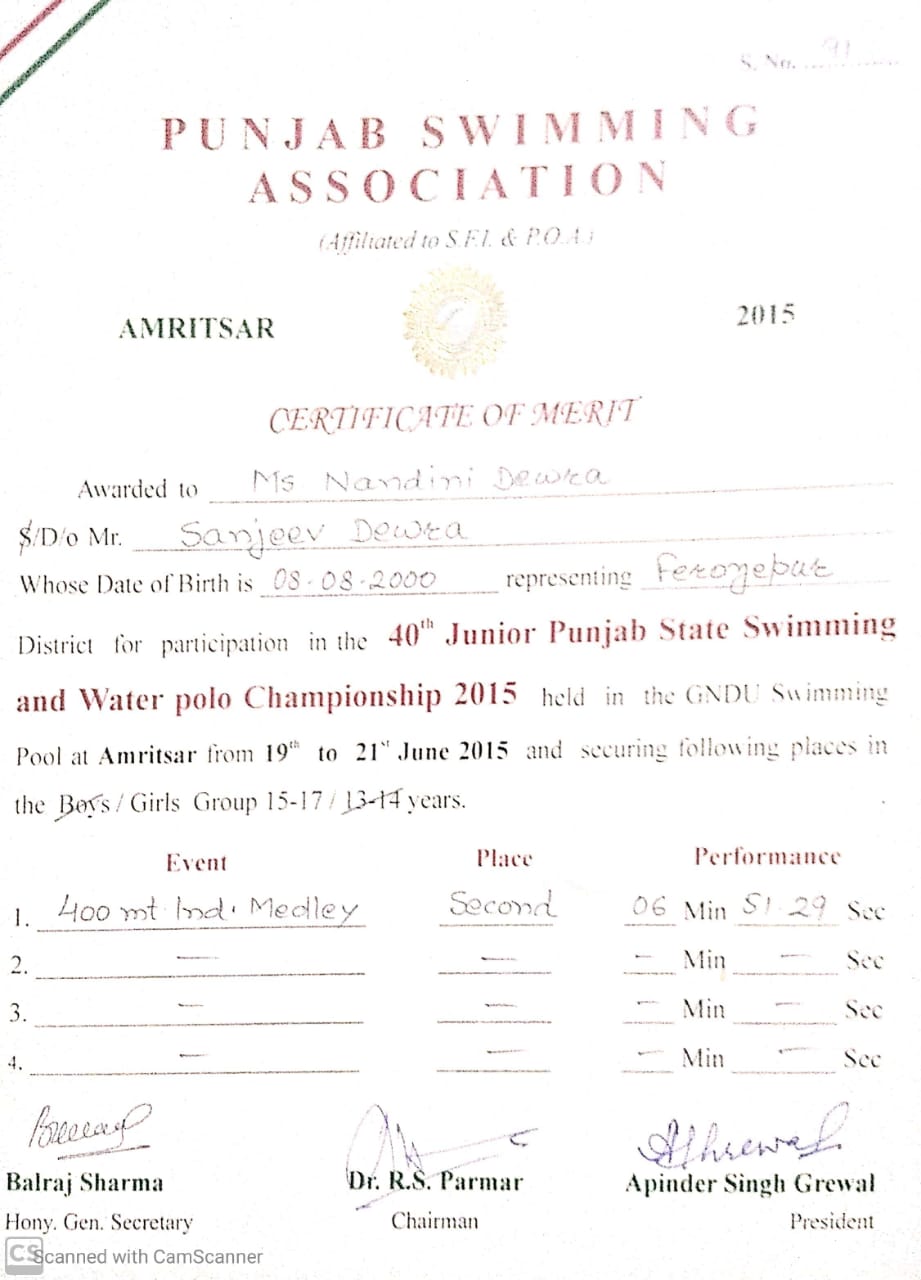 S. No. 91
PUNJAB SWIMMING
ASSOCIATION
(Affiliated to S.F.I. & P.O.A.)
AMRITSAR 2015
CERTIFICATE OF MERIT
Awarded to Ms Nandini Dewra
S/D/o Mr. Sanjeev Dewra
Whose Date of Birth is 08-08-2000 representing Ferozepur
District for participation in the 40th Junior Punjab State Swimming
and Water polo Championship 2015 held in the GNDU Swimming
Pool at Amritsar from 19th to 21st June 2015 and securing following places in
the Boys / Girls Group 15-17 / 13-14 years.
Event Place Performance
1. 400 mt Ind. Medley Second 06 Min 51.29 Sec
2. — — — Min — Sec
3. — — — Min — Sec
4. — — — Min — Sec
Balraj Sharma Dr. R.S. Parmar Apinder Singh Grewal
Hony. Gen. Secretary Chairman President
CS Scanned with CamScanner